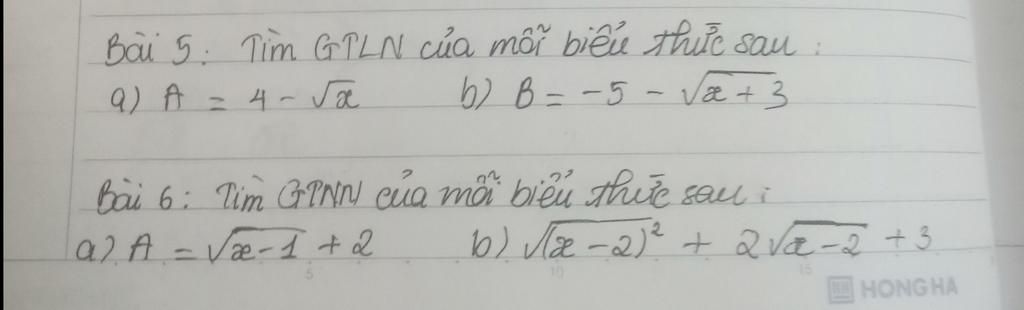 Bài 5: Tìm GTLN của mỗi biểu thức sau:
a) A = 4 - √x b) B = -5 - √(x+3)
Bài 6: Tìm GTNN của mỗi biểu thức sau:
a) A = √(x-1) + 2 b) √(x-2)² + 2√(x-2) + 3
5 10 15
HONG HA